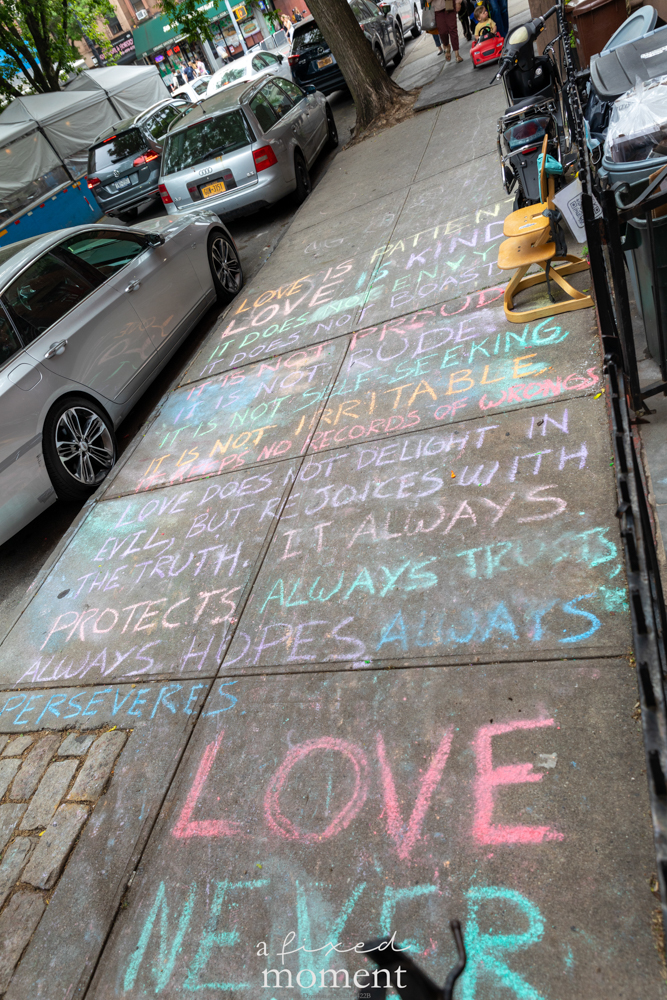 LOVE IS PATIENT
LOVE IS KIND
IT DOES NOT ENVY
IT DOES NOT BOAST
IT IS NOT PROUD
IT IS NOT RUDE
IT IS NOT SELF-SEEKING
IT IS NOT IRRITABLE
KEEPS NO RECORDS OF WRONGS
LOVE DOES NOT DELIGHT IN
EVIL, BUT REJOICES WITH
THE TRUTH. IT ALWAYS
PROTECTS ALWAYS TRUSTS,
ALWAYS HOPES ALWAYS
PERSEVERES
LOVE
NEVER
a fixed
moment